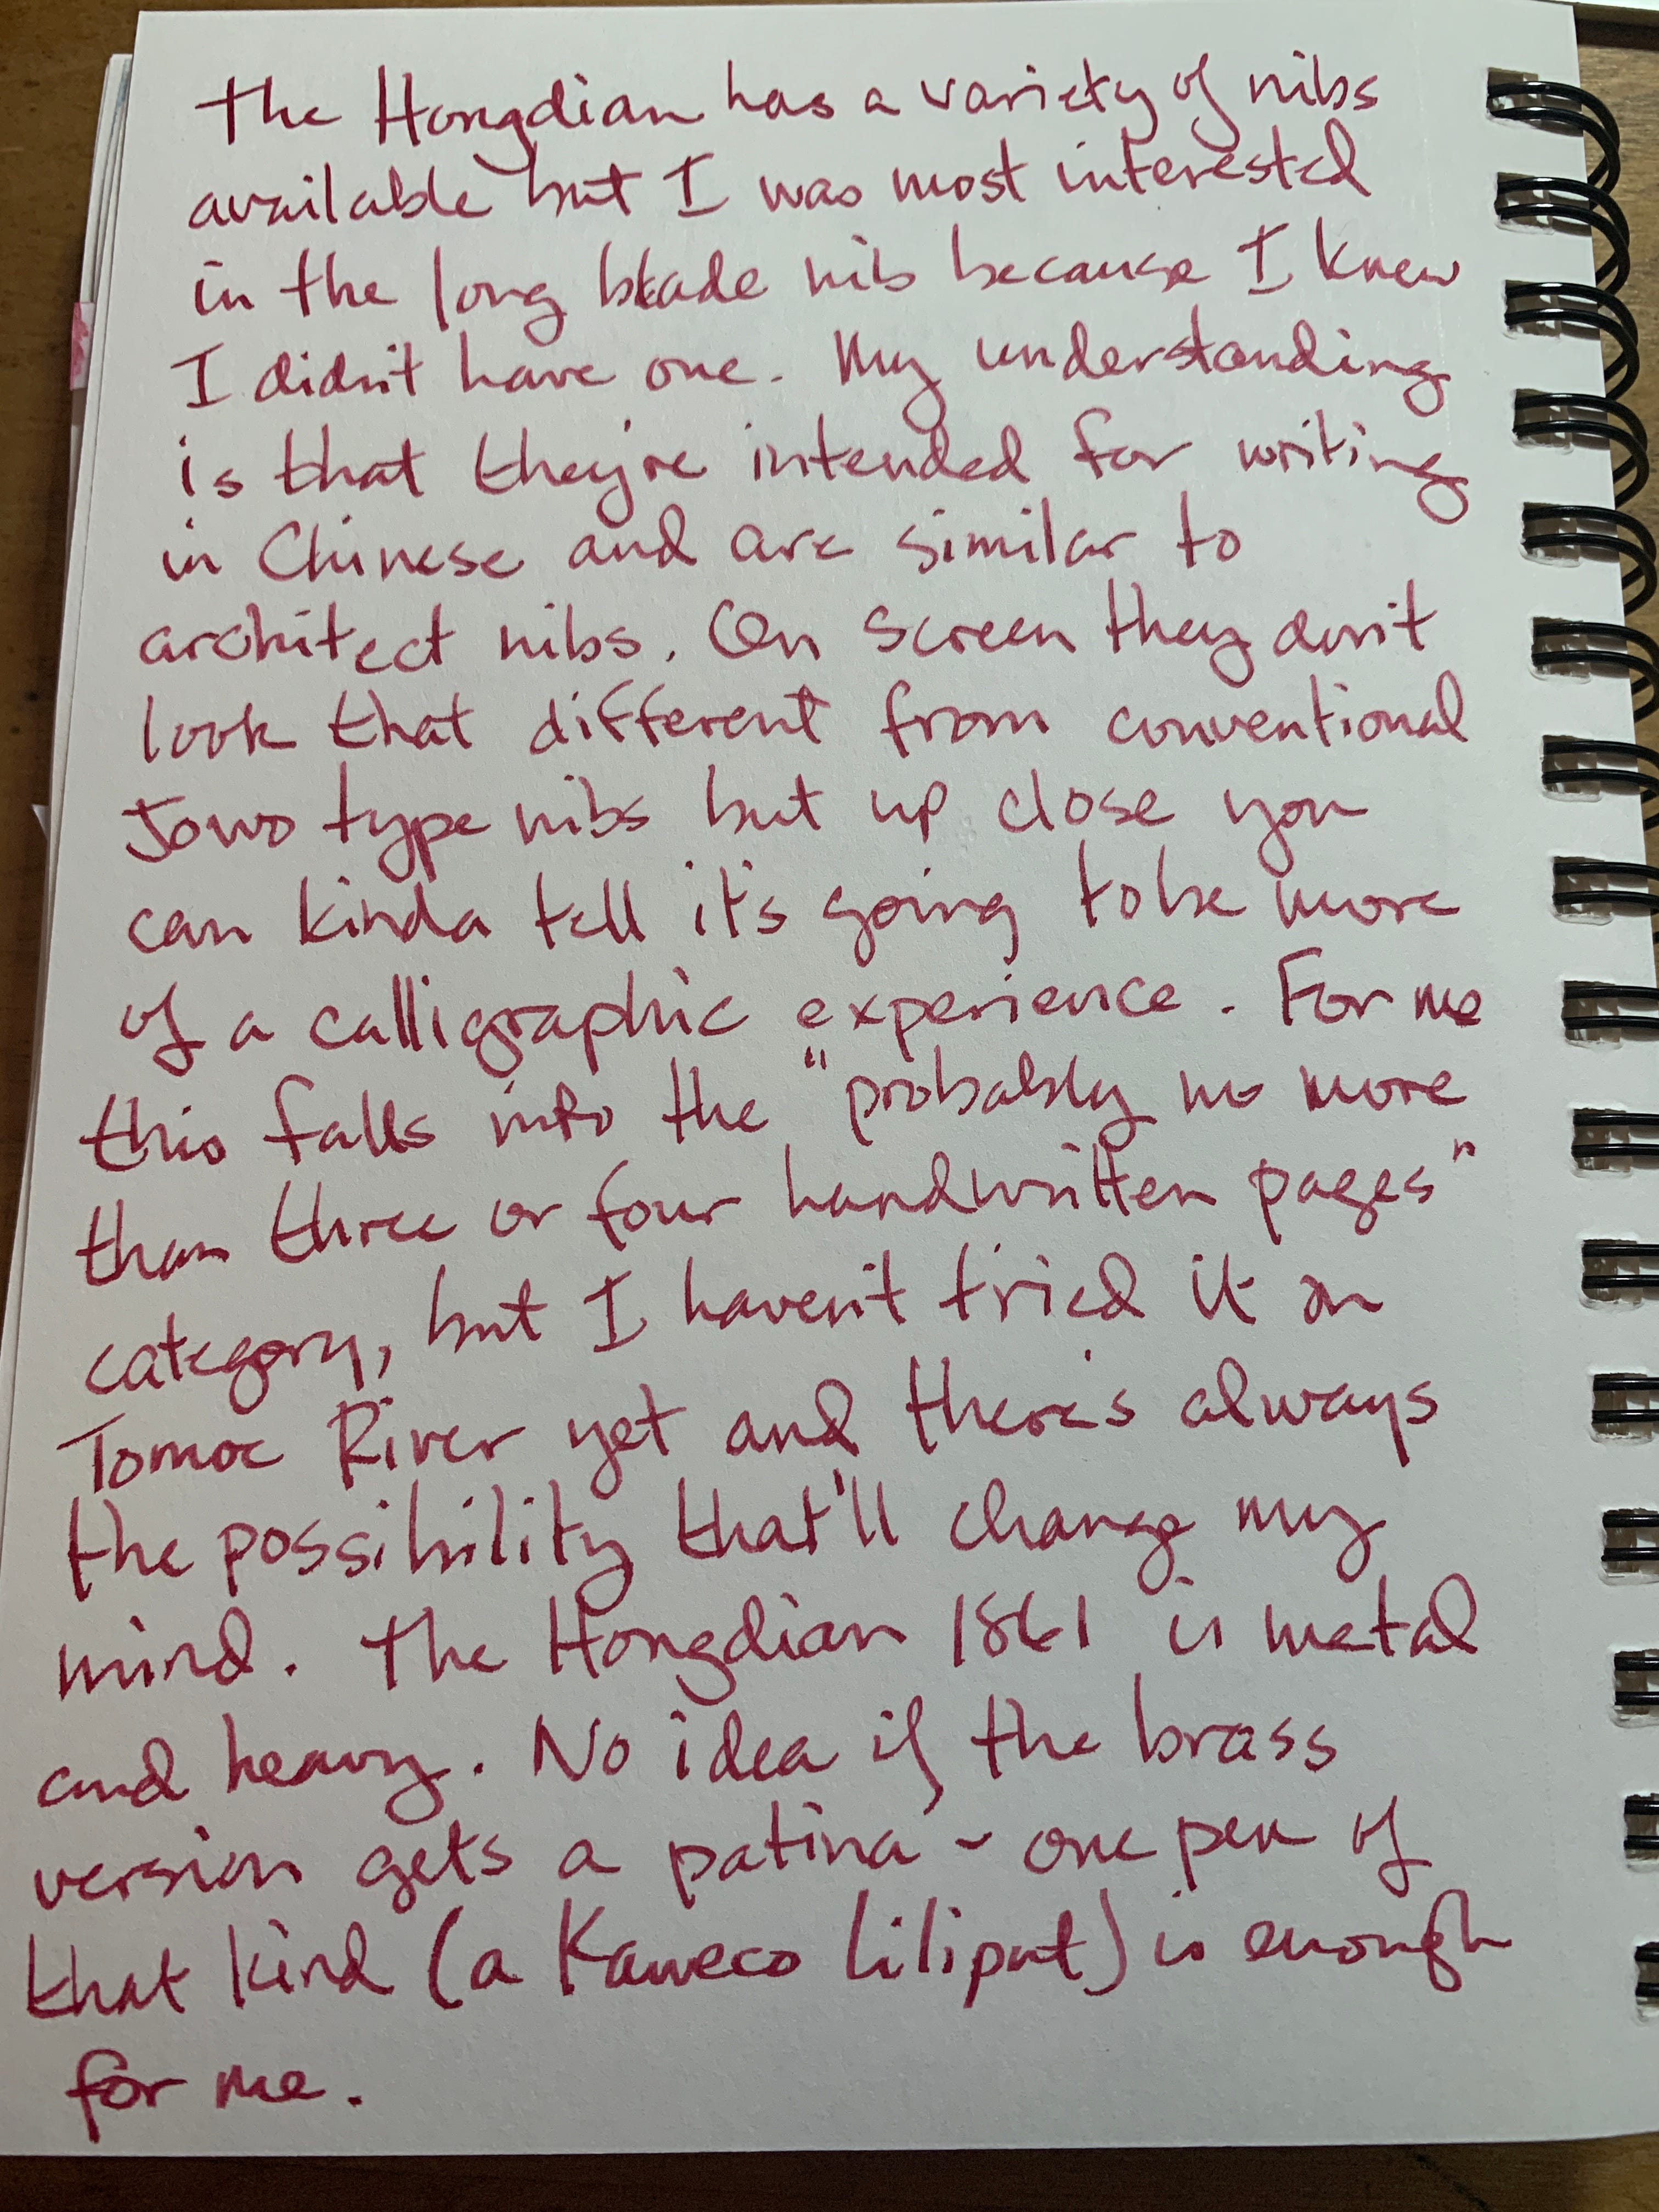 The Hongdian has a variety of nibs
available but I was most interested
in the long blade nib because I knew
I didn't have one. My understanding
is that they're intended for writing
in Chinese and are similar to
architect nibs. On screen they don't
look that different from conventional
Jowo type nibs but up close you
can kinda tell it's going to be more
of a calligraphic experience. For me
this falls into the "probably no more
than three or four handwritten pages"
category, but I haven't tried it on
Tomoe River yet and there's always
the possibility that'll change my
mind. The Hongdian 1861 is metal
and heavy. No idea if the brass
version gets a patina - one pen of
that kind (a Kaweco Liliput) is enough
for me.